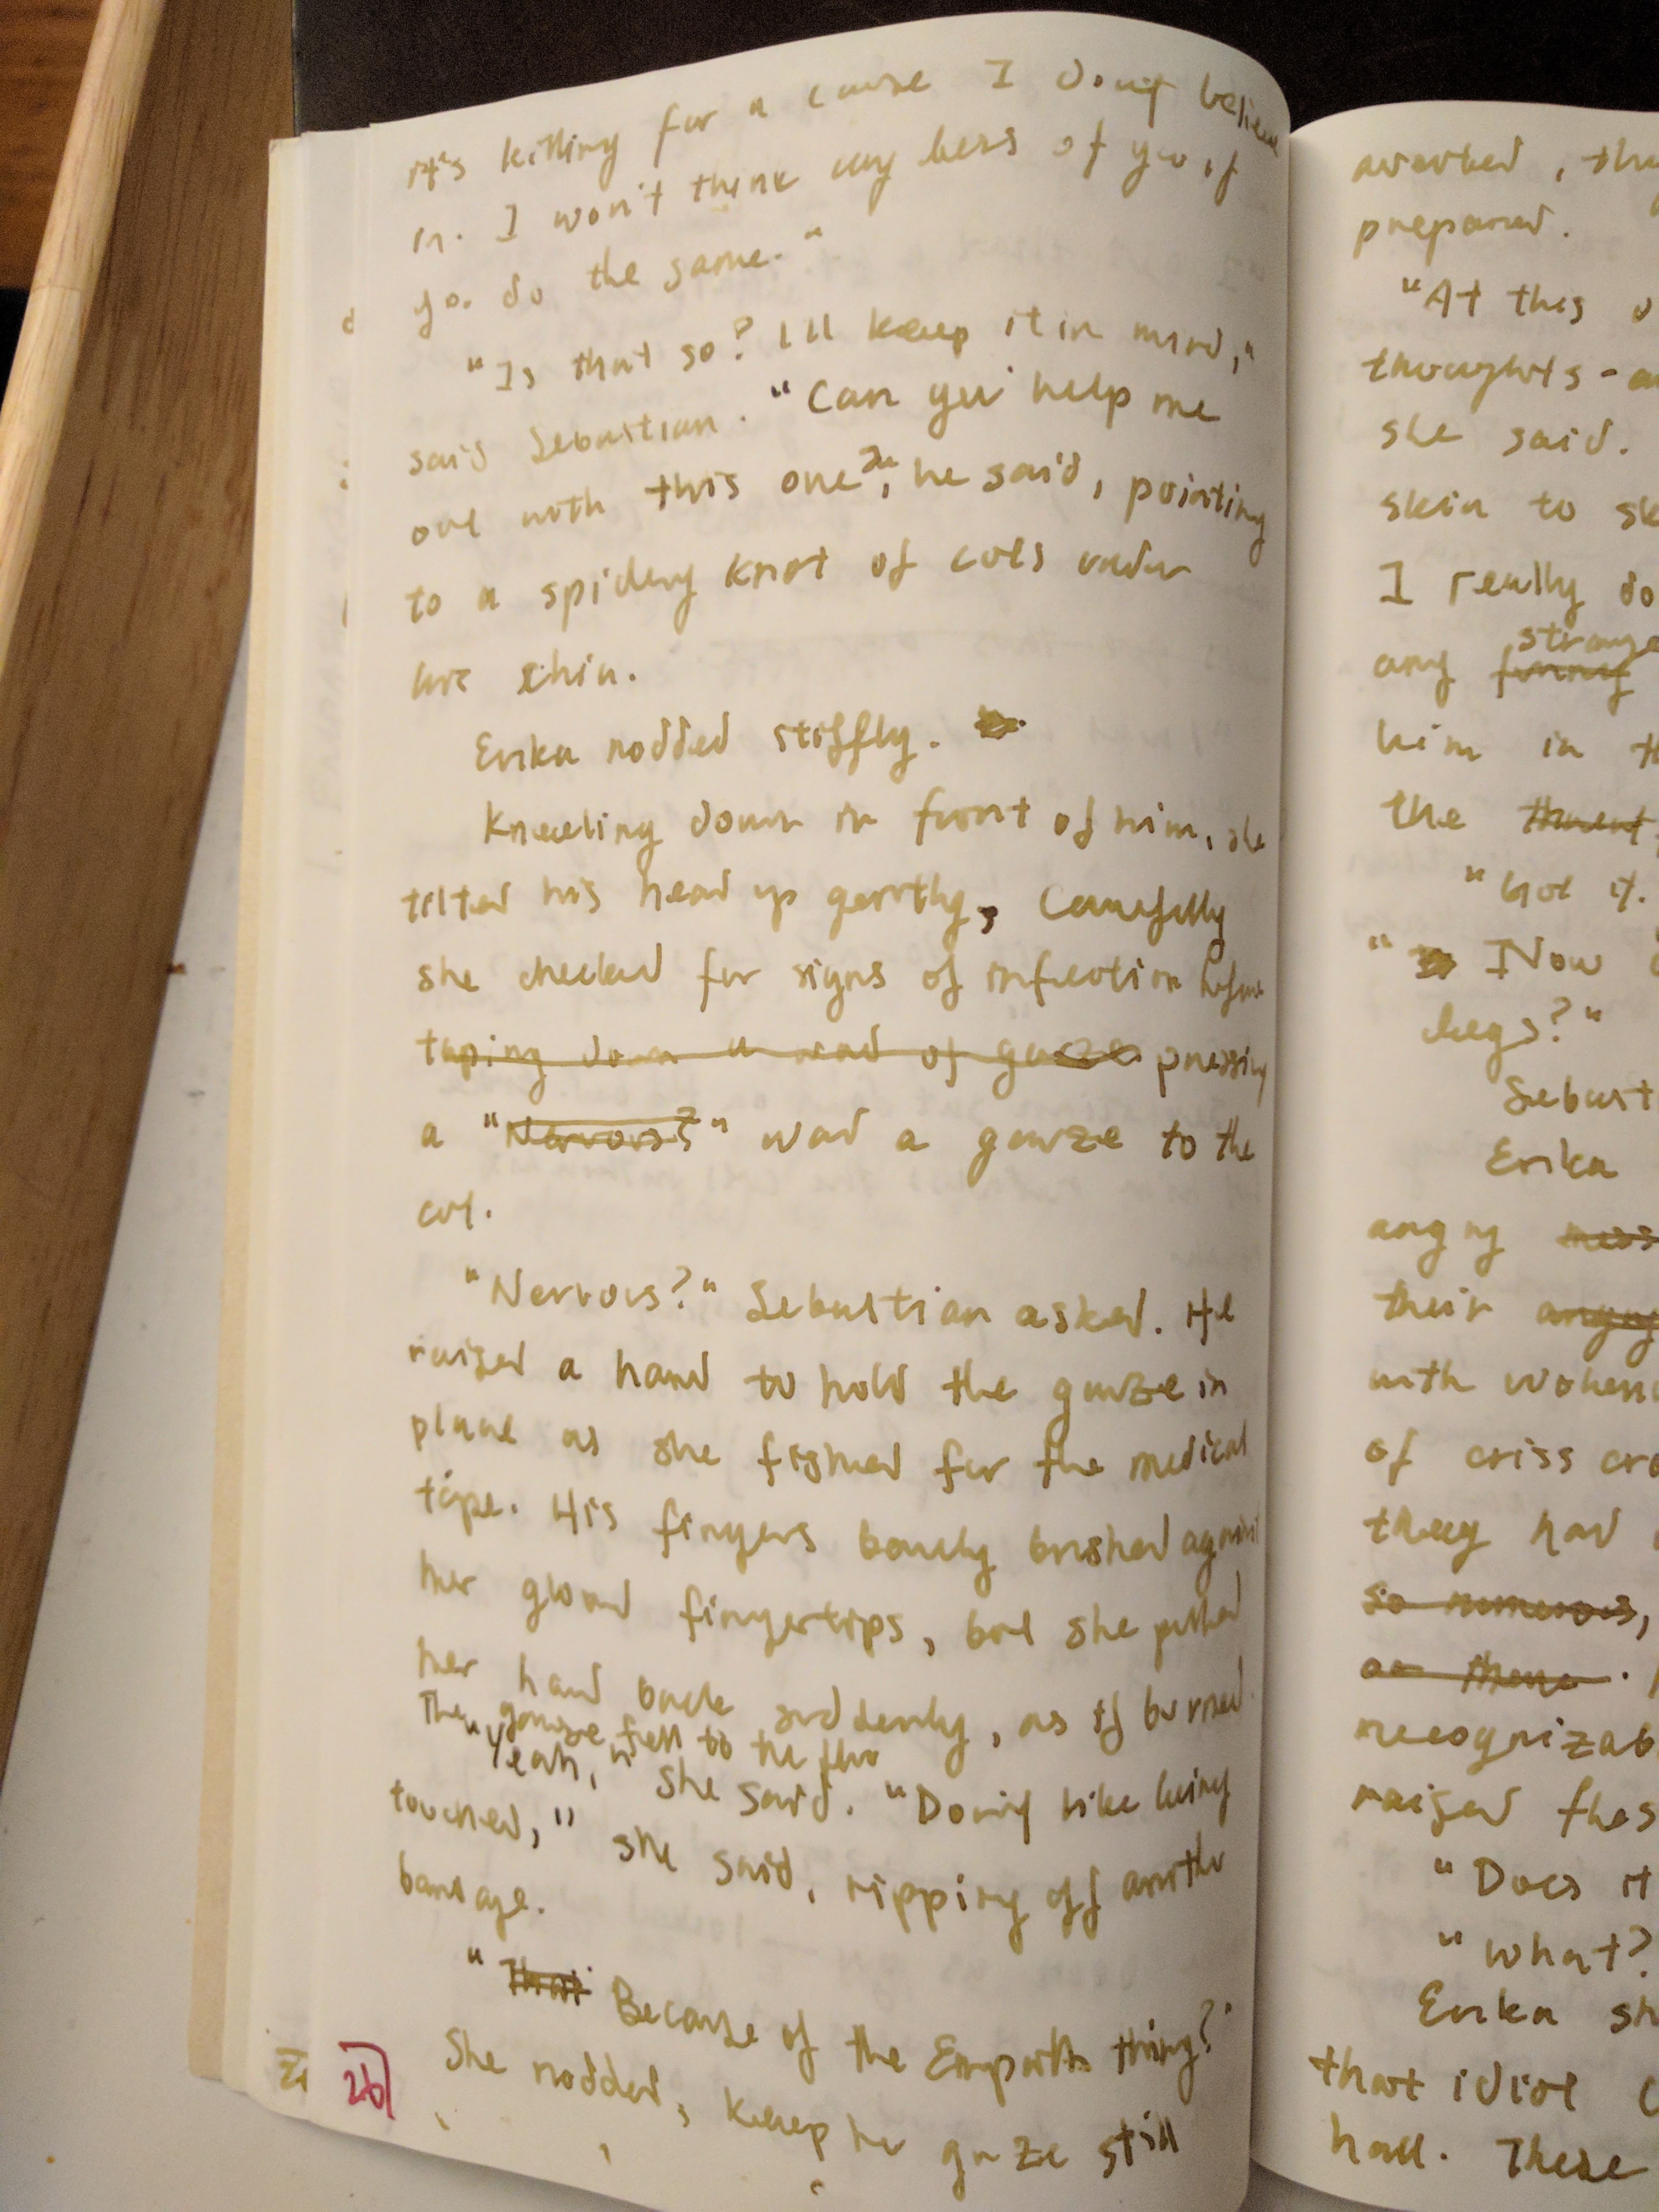 it's killing for a cause I don't believe
in. I won't think any less of you if
you do the same."
"Is that so? I'll keep it in mind,"
said Sebastian. "Can you help me
out with this one?", he said, pointing
to a spidery knot of cuts under
his chin.
Erika nodded stiffly.
Kneeling down in front of him, she
tilted his head up gently, Carefully
she checked for signs of infection before
taping down a wad of gauze pressing
a "Nervous?" wad a gauze to the
cut.
"Nervous?" Sebastian asked. He
raised a hand to hold the gauze in
place as she fished for the medical
tape. His fingers barely brushed against
her gloved fingertips, but she pulled
her hand back suddenly, as if burned.
The gauze fell to the floor
"Yeah," she said. "Don't like being
touched," she said, ripping off another
bandage.
"That Because of the Empath thing?"
She nodded, keep her gaze still
26
averted, tho
prepared.
"At this
thoughts - 
she said.
skin to sk
I really do
strange
any funny
him in th
the threat
"Got it.
" Now
legs?"
Sebast
Erika
angry mess
their angry
with
of criss cro
they had
so numerous,
as there.
recognizab
raised thes
"Does it
"What?
Erika sh
that idiot
hall. These